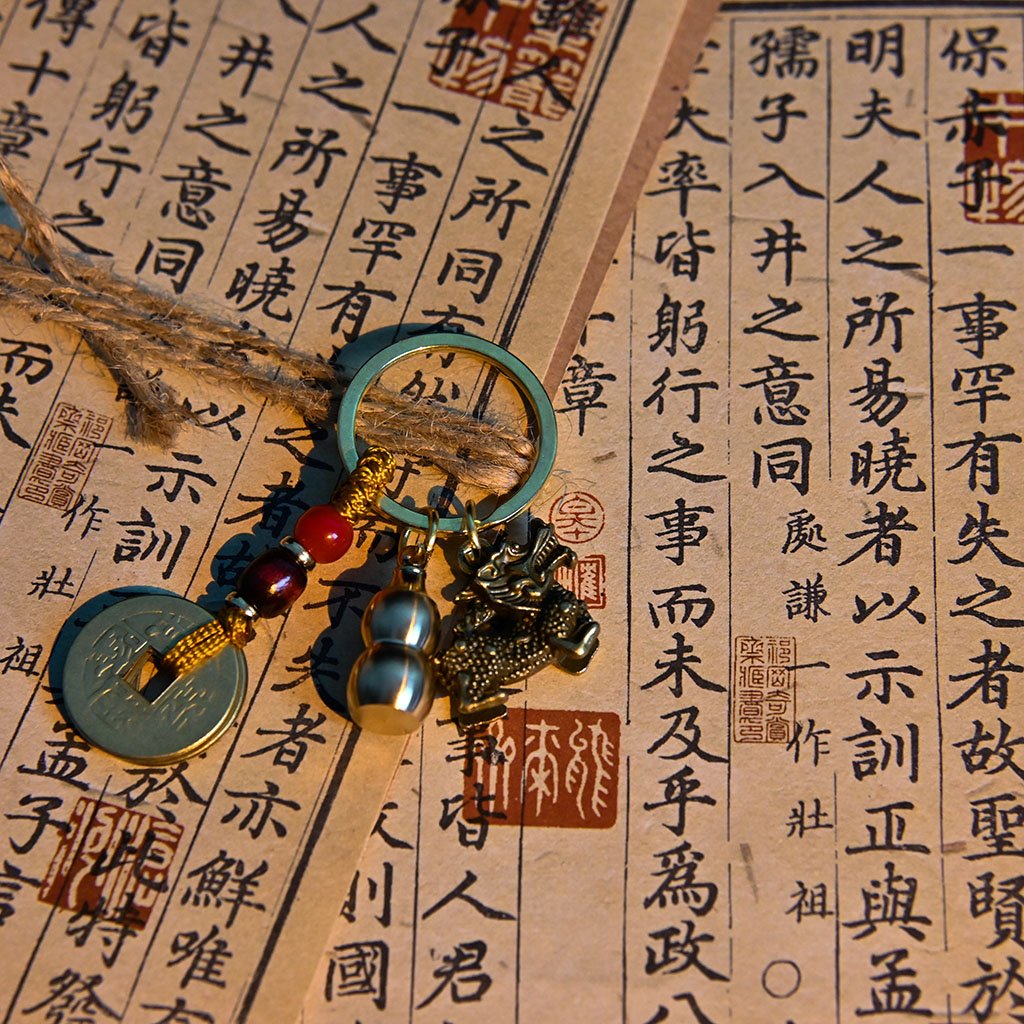 保赤子一事罕有失之者故聖賢於
明夫人之所易曉者以示訓正與孟
孺子入井之意同處謙一作壯祖○
大率皆躬行之事而未及乎爲政八
章
事皆人君
則國
雖人之所同有然守而不失者亦鮮唯有
子一事罕有之者故於此特發
人之所易曉以示訓孟子言
井之意同一作壯祖
皆躬行之而未
傳十章